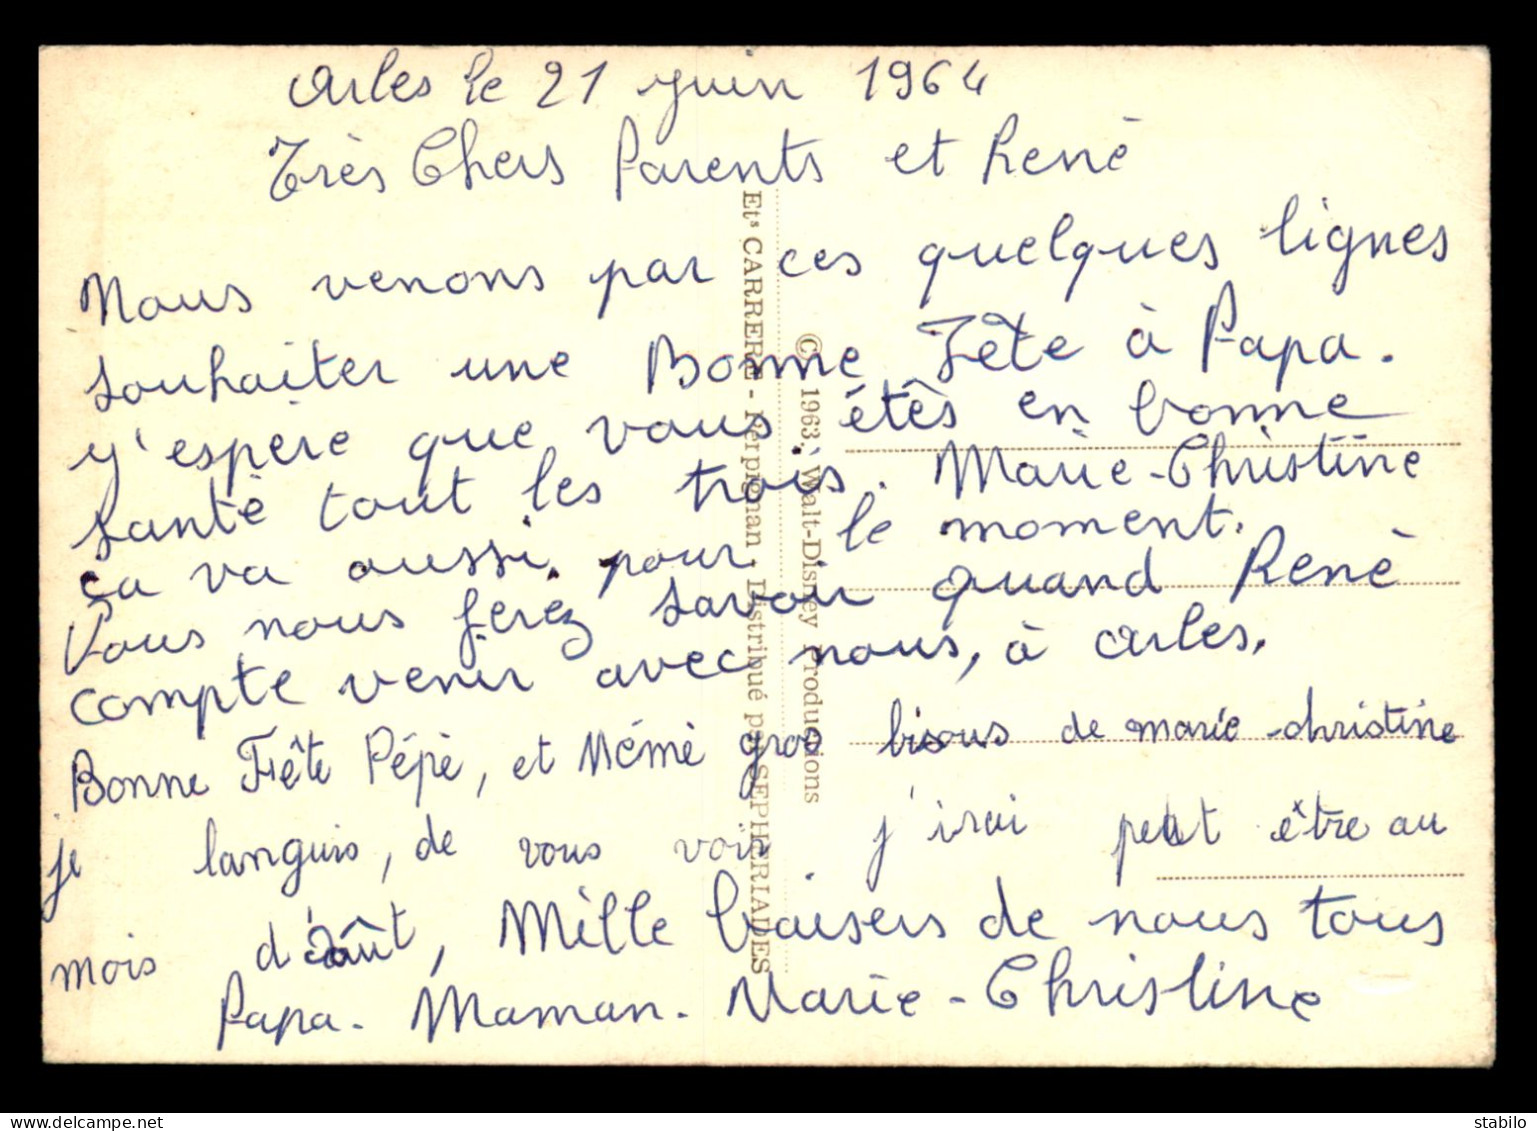 Arles le 21 juin 1964
Très Chers Parents et René
Nous venons par ces quelques lignes
souhaiter une Bonne Fête à Papa.
j'espère que vous êtês en bonne
santé tout les trois. Marie-Christine
ça va aussi, pour le moment.
Vous nous ferez savoir quand René
compte venir avec nous, à Arles.
Bonne Fête Pépé, et Mémé gros bisous de marie-christine
je languis, de vous voir j'irai peut être au
mois d'août, Mille baisers de nous tous
Papa. Maman. Marie-Christine
Ets CARRERE - Perpignan - Distribué par SEPHERIADES
© 1963, Walt-Disney Productions
stabilo